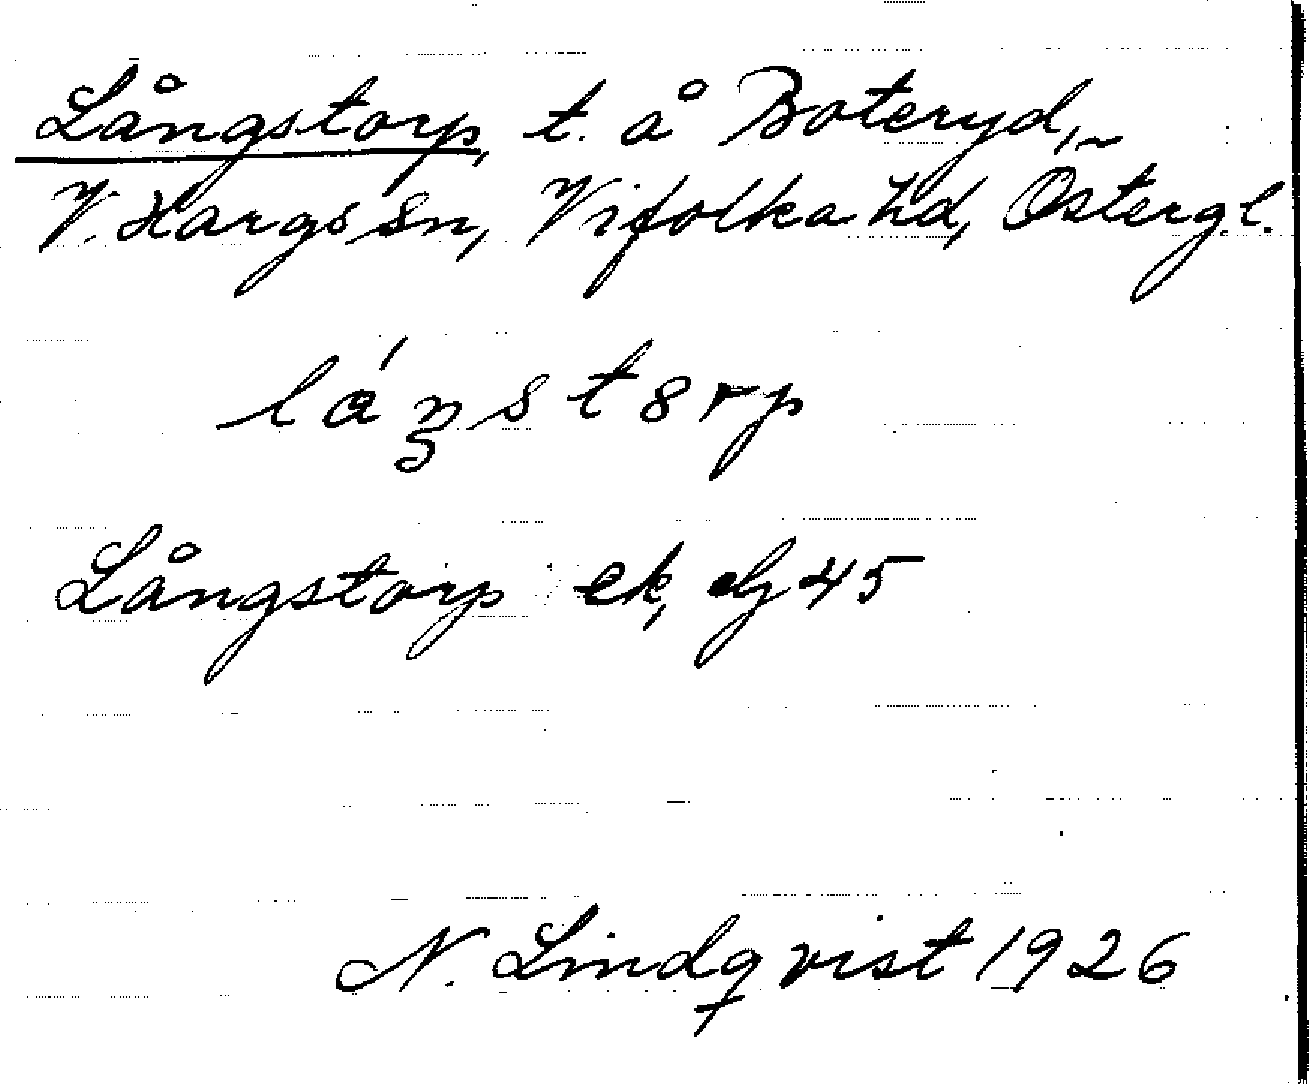 Långstorp, t. å Boteryd,
V. Hargs sn, Vifolka hd, Östergl.
låŋstorp
Långstorp ek, dg 45
N. Lindqvist 1926